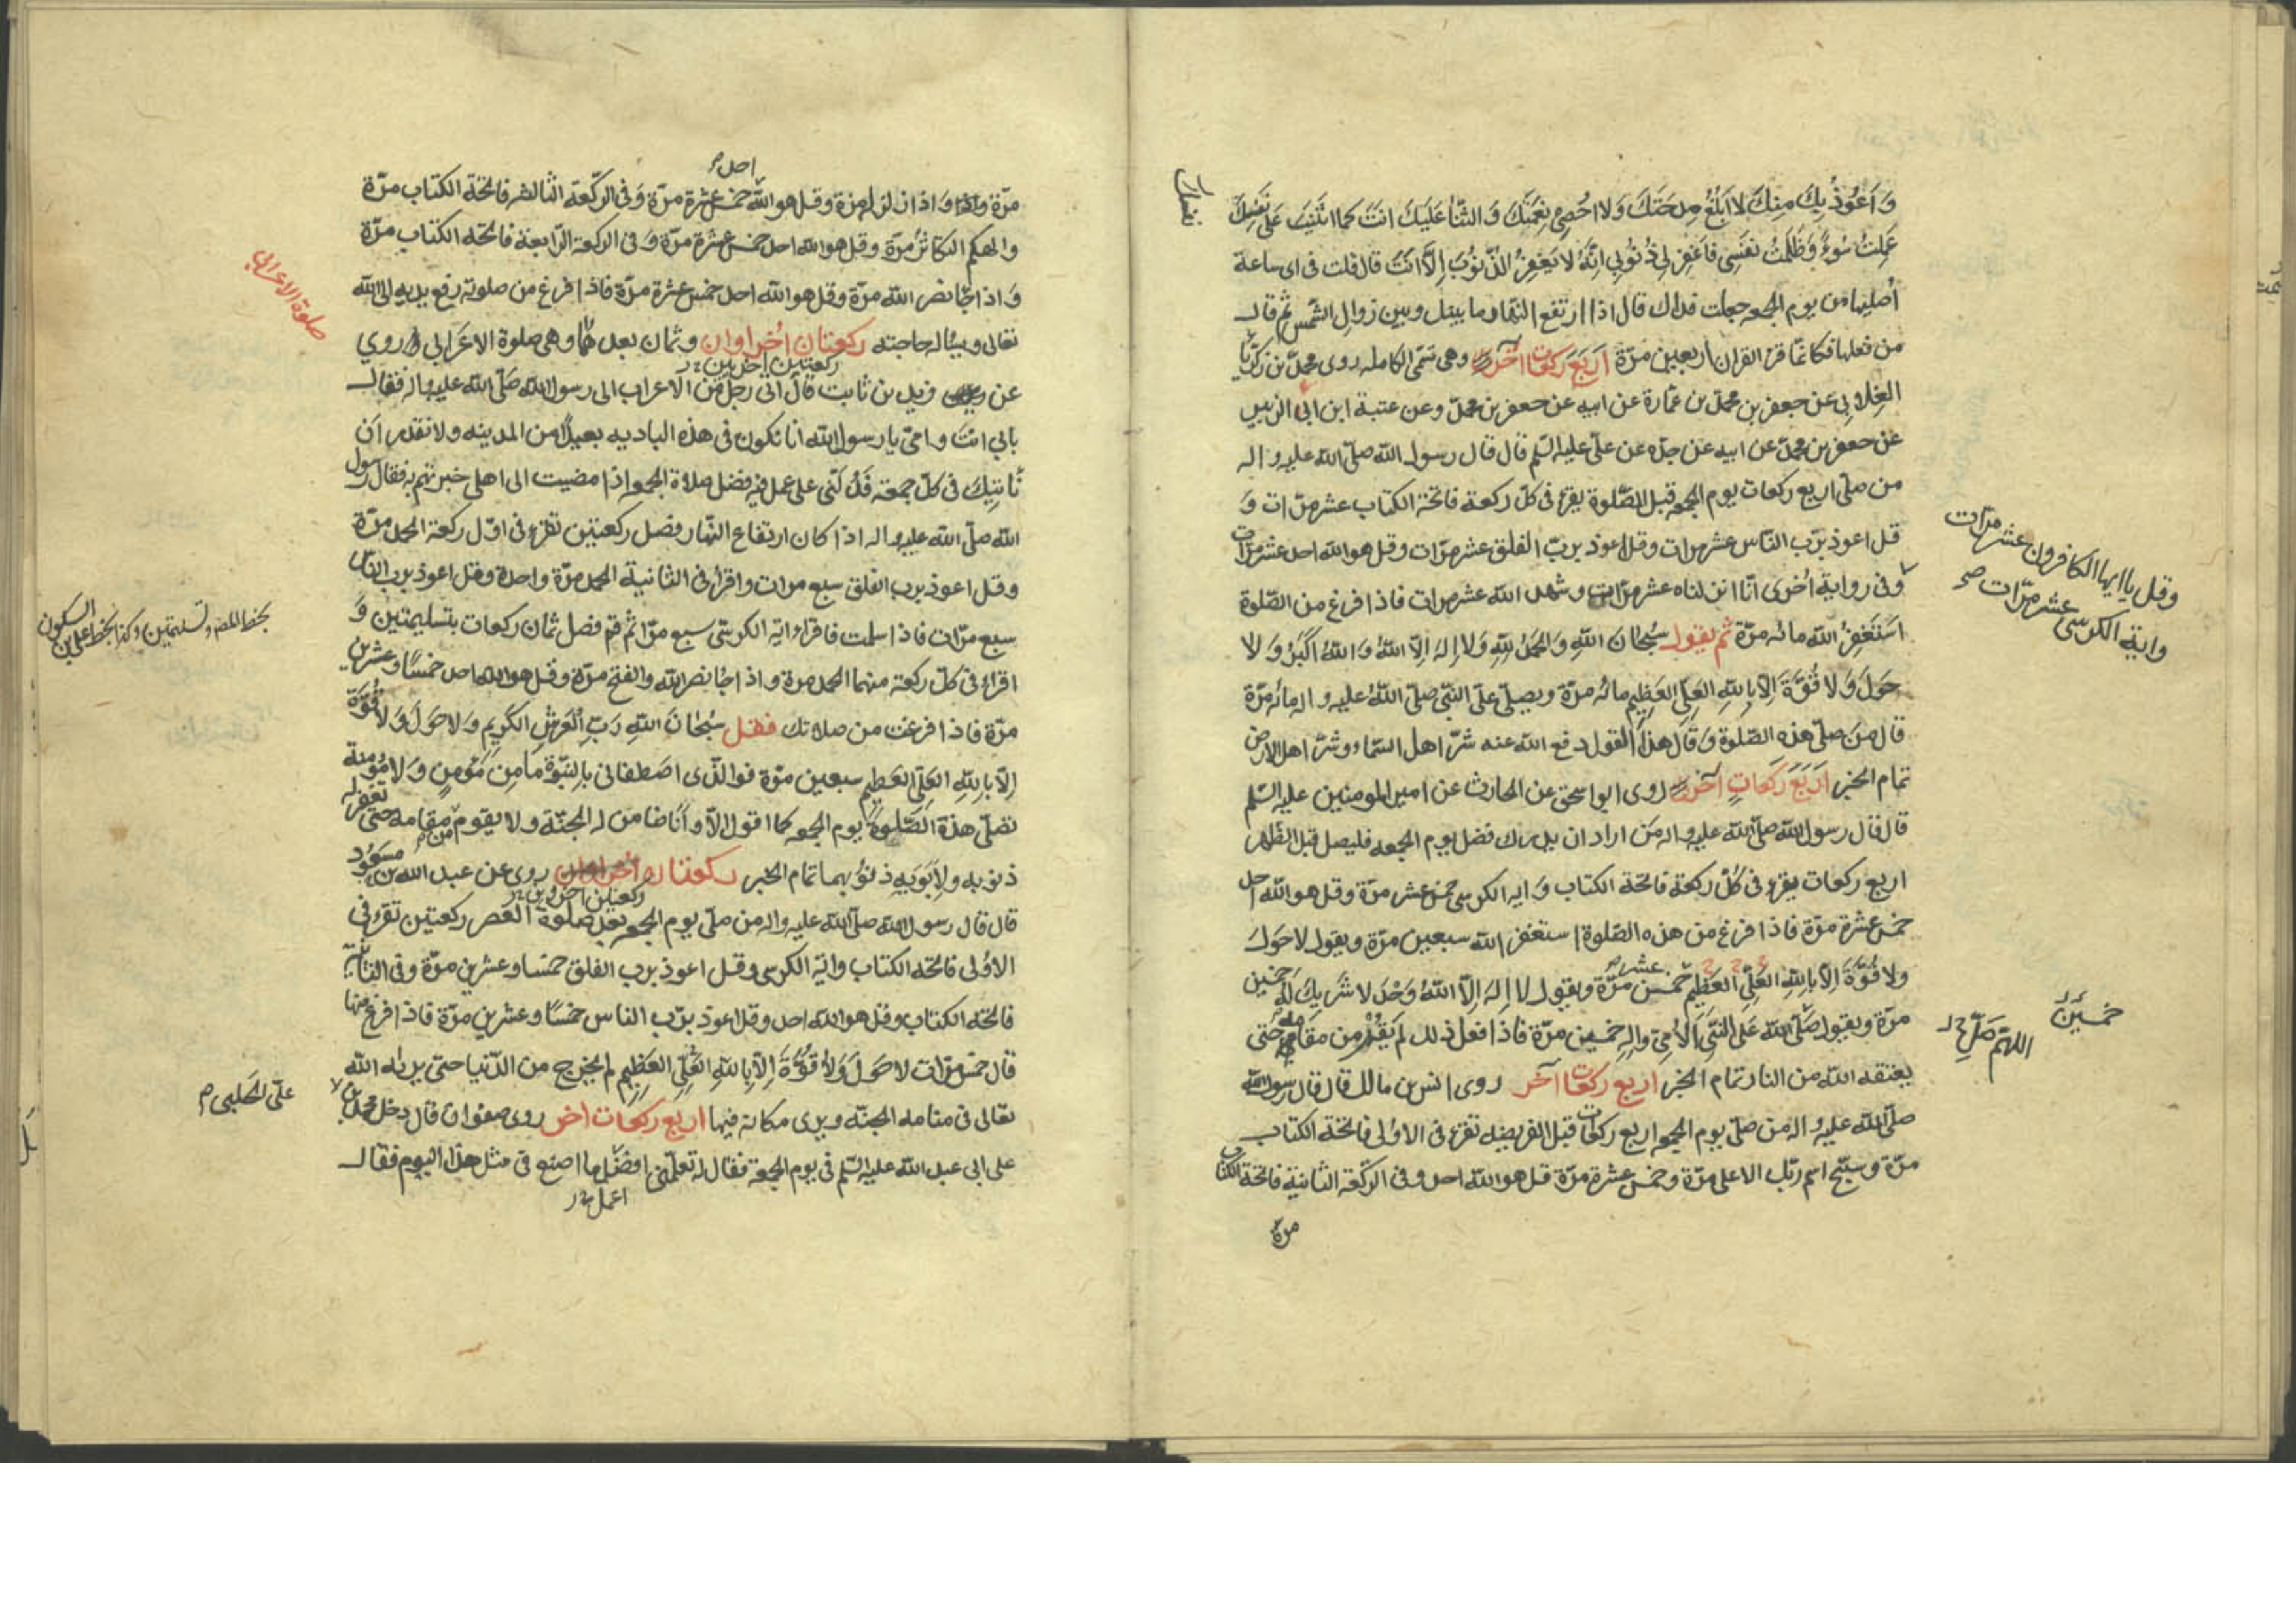 وَاَعُوذُ بِكَ مِنكَ لا اَبلُغُ مِدحَتَكَ وَلا اُحصِي نِعمَتَكَ وَ الثَّناءَ عَلَيكَ انتَ كما اثنَيتَ عَلى نَفسِكَ
عَمِلتُ سُوءً وَظَلَمتُ نَفسى فَاغفِر لى ذُنُوبى اِنَّهُ لا يَغفِرُ الذُّنُوبَ اِلّا انتَ قال قلت فى اى ساعة
اُصليها من يوم الجمعه جعلت فداك قال اذا ارتفع النهار ما بينك وبين زوال الشمس ثم قال
من فعلها فكانّما قرء القران اربعين مرّة اَربَعَ رَكعات اُخر وهى تسمّى الكامله روى محمّد بن زكريّا
الغلابى عن جعفر بن محمّد بن عمّارة عن ابيه عن جعفر بن محمّد وعن عتبة ابن ابى الزبير
عن جعفر بن محمّد عن ابيه عن جدّه عن علىّ عليه السّلم قال قال رسول الله صلّى الله عليه و اله
من صلّى اربع ركعات يوم الجمعه قبل الصّلوة يقرء فى كلّ ركعة فاتحة الكتاب عشر مرّات وَ
قل اعوذ بربّ النّاس عشر مرات وقل اعوذ بربّ الفلق عشر مرّات وقل هو الله احد عشر مرّات
وقل يا ايها الكافرون عشر مرّات
واية الكرسى عشر مرّات صح
وفى رواية اُخرى انّا انزلناه عشر مرّات وشهد الله عشر مرات فاذا فرغ من الصّلوة
اَستَغفِرُ الله مائه مرّة ثم يقول سُبحانَ اللهِ وَالحَمدُ لِلهِ وَلا اِلهَ اِلّا اللهُ وَ اللهُ اَكبَرُ وَ لا
حَولَ وَ لا قُوَّةَ اِلّا بِاللهِ العَلِىِّ العَظِيمِ مائه مرّة ويصلّى على النّبى صلّى اللهُ عليه و اله مائه مرّة
قال مَن صلّى هذه الصّلوة وَ قالَ هذا القول دفع الله عنه شرّ اهل السّماء وشرّ اهل الارض
تمام الخبر اَربَعَ رَكعاتٍ اُخر روى ابو اسحق عن الحارث عن امير المومنين عليه السّلم
قال قال رسول الله صلّى الله عليه و اله مَن اراد ان يدرك فضل يوم الجمعه فليصل قبل الظّهر
اربع ركعات يقرء فى كلّ ركعة فاتحة الكتاب وَ ايه الكرسى خمس عشر مرّة وقل هو الله احد
خمس عشرة مرّة فاذا فرغ من هذه الصّلوة استغفر الله سبعين مرّة ويقول لا حَولَ
ولا قُوَّةَ اِلّا بِاللهِ العَلِىِّ العَظِيمِ خمسين مرّة ويقول لا اِلهَ اِلّا اللهُ وَحدَه لا شَريكَ لَهُ خمسين
خَمسِينَ
مرّة ويقول صَلَّى الله عَلى النَّبِىِّ الاُمِىِّ والِهِ خمسين مرّة فاذا فعل ذلك لَم يَقُم من مقامه حتى
اللهمّ صَلِّ
يعتقه الله من النار تمام الخبر اَربع ركعات اُخر روى انس بن مالك قال قال رسول الله
صلّى الله عليه و اله من صلّى يوم الجمعه اربع ركعات قبل الفريضه تقرء فى الاولى فاتحة الكتاب
مرّة و سبّح اسم ربّك الاعلى مرّة وخمس عشرة مرّة قل هو الله احد وفى الركعة الثانية فاتحة الكتاب
مرة
احد
مرّة وَ اذا زلزلت مرّة وقل هو الله خمس عشرة مرّة وَفى الرّكعة الثالثه فاتحة الكتاب مرّة
والهيكم التكاثر مرّة وقل هو الله احد خمس عشرة مرّة وَ فى الركعة الرّابعة فاتحة الكتاب مرّة
وَ اذا جاء نصر الله مرّة وقل هو الله احد خمس عشرة مرّة فاذا فرغ من صلوته رفع يديه الى الله
صلوة الاعرابى
تعالى ويسأله حاجته ركعتان اُخراوان وثمان بعدهما وهى صلوة الاعرابى روي
ركعتين اخريين
عن زيد بن ثابت قال اتى رجل من الاعراب الى رسول الله صَلّى الله عليه و اله فقال
بابى انتَ و امّى يا رسول الله انا نكون فى هذه الباديه بعيدًا من المدينه ولا نقدر اَن
نَأتيكَ فى كلّ جمعة فَدُلَّنى على عمل فيه فضل صلاة الجمعه اذا مضيت الى اهلى خبرتهم به فقال رسول
الله صلّى الله عليه و اله اذا كان ارتفاع النّهار فصل ركعتين تقرء فى اوّل ركعة الحمد مرّة
وقل اعوذ برب الفلق سبع مرات واقرأ فى الثانية الحمد مرّة واحدة وقل اعوذ برب الناس
سبع مرّات فاذا سلمت فاقراء اية الكرسى سبع مرّا ثم قم فصل ثمان ركعات بتسليمتين وَ
اقراء فى كلّ ركعة منهما الحمد مرة و اذا جاء نصر الله والفتح مرّة وقل هو الله احد خمسًا وعشرين
مرّة فاذا فرغت من صلاتك فقل سُبحانَ اللهِ رَبِّ العَرشِ الكَرِيم وَلا حَولَ وَ لا قُوَّةَ
اِلّا بِاللهِ العَلِىِّ العَظِيمِ سبعين مرّة فوالّذى اصَطفانى بِالنّبوّة ما مِن مُومِنٍ وَ لا مُومِنة
تصلّى هذة الصَّلوة يوم الجمعه كما اقول الّا وَ اَنا ضامن له الجنّة ولا يقوم من مقامه حتى تغفر له
ذنوبه و لِاَبَوَيهِ ذنوبهما تمام الخبر ركعتان اُخراوان روى عن عبد الله بن مسعود
ركعتين اخروين
قال قال رسول الله صلّى الله عليه و اله من صلّى يوم الجمعه بعد صلوة العصر ركعتين تقرء فى
الاوُلى فاتحة الكتاب وايّة الكرسى وقل اعوذ برب الفلق خمسا وعشرين مرّة وفى الثانية
فاتحة الكتاب وقل هو الله احد وقل اعوذ بربّ الناس خمسًا وعشرين مرّة فاذا فرغ منها
قال خمس مرّات لا حَولَ وَلا قُوَّةَ اِلّا بِاللهِ العَلِىِّ العَظِيمِ لم يخرج من الدّنيا حتى يريه الله
تعالى فى منامه الجنّة ويرى مكانه فيها اربع ركعات اخر روى صفوان قال دخل محمّد بن
علىّ الحلبى
على ابى عبد الله عليه السّلم فى يوم الجمعة فقال له تعلّمنى افضل ما اصنع فى مثل هذا اليوم فقال
اعمل